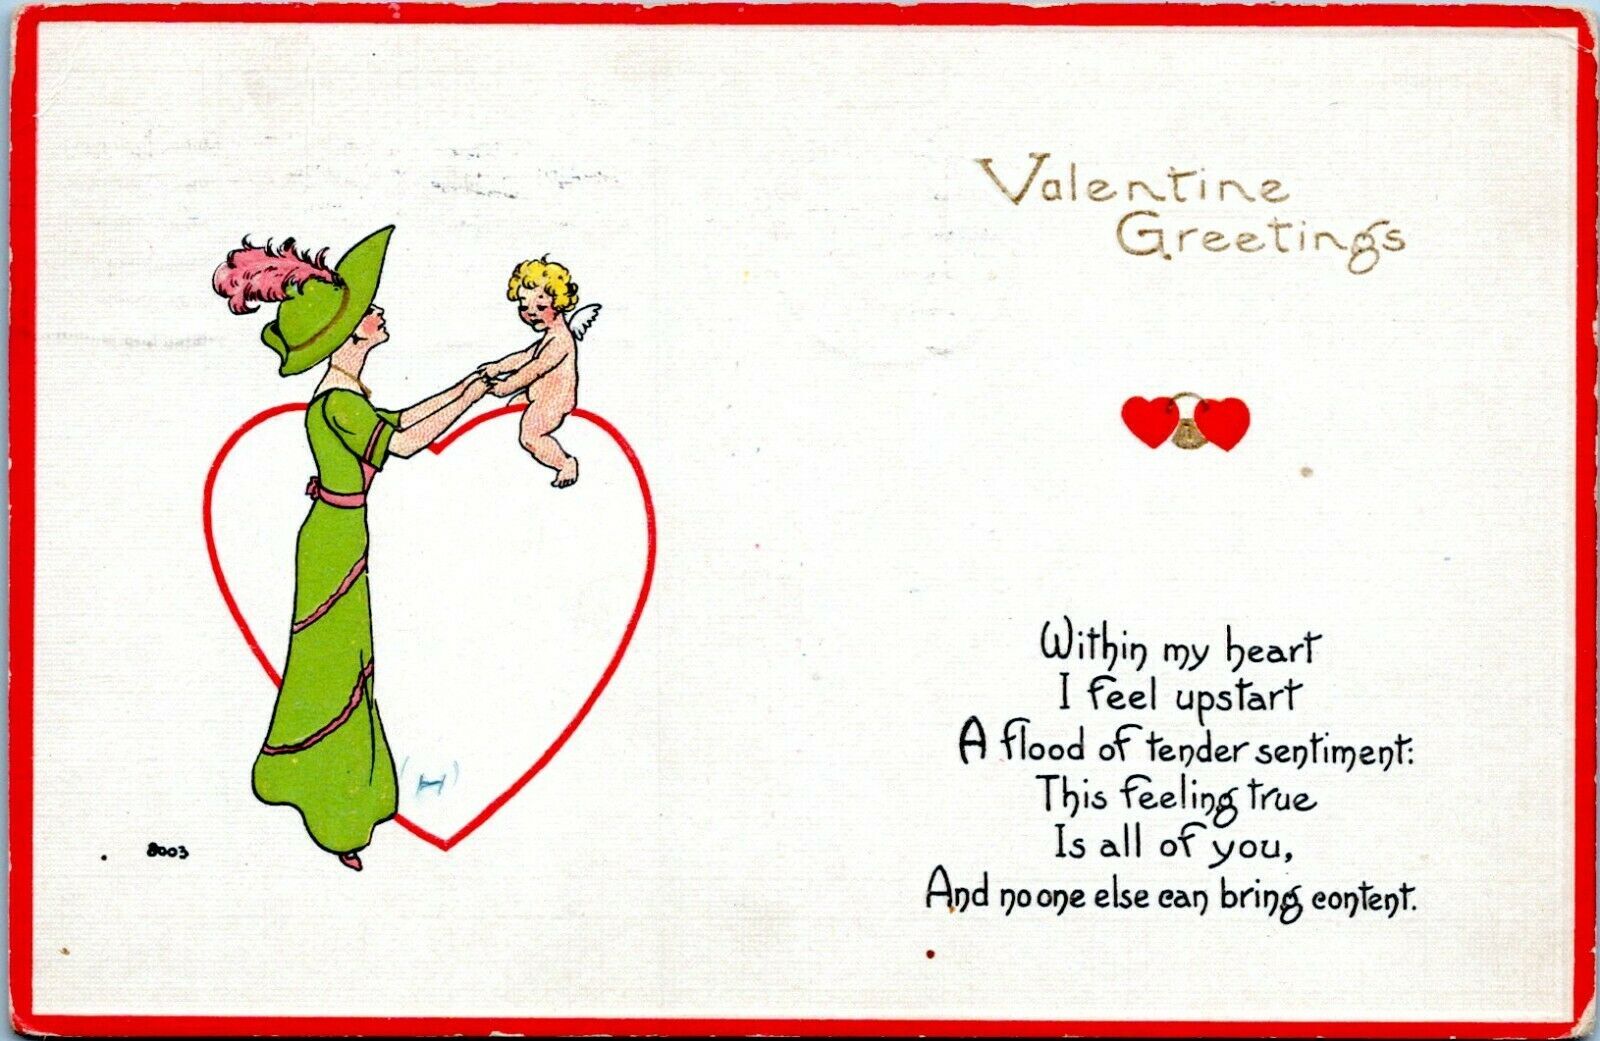 Valentine
Greetings
Within my heart
I feel upstart
A flood of tender sentiment:
This feeling true
Is all of you,
And no one else can bring content.
8003
(H)